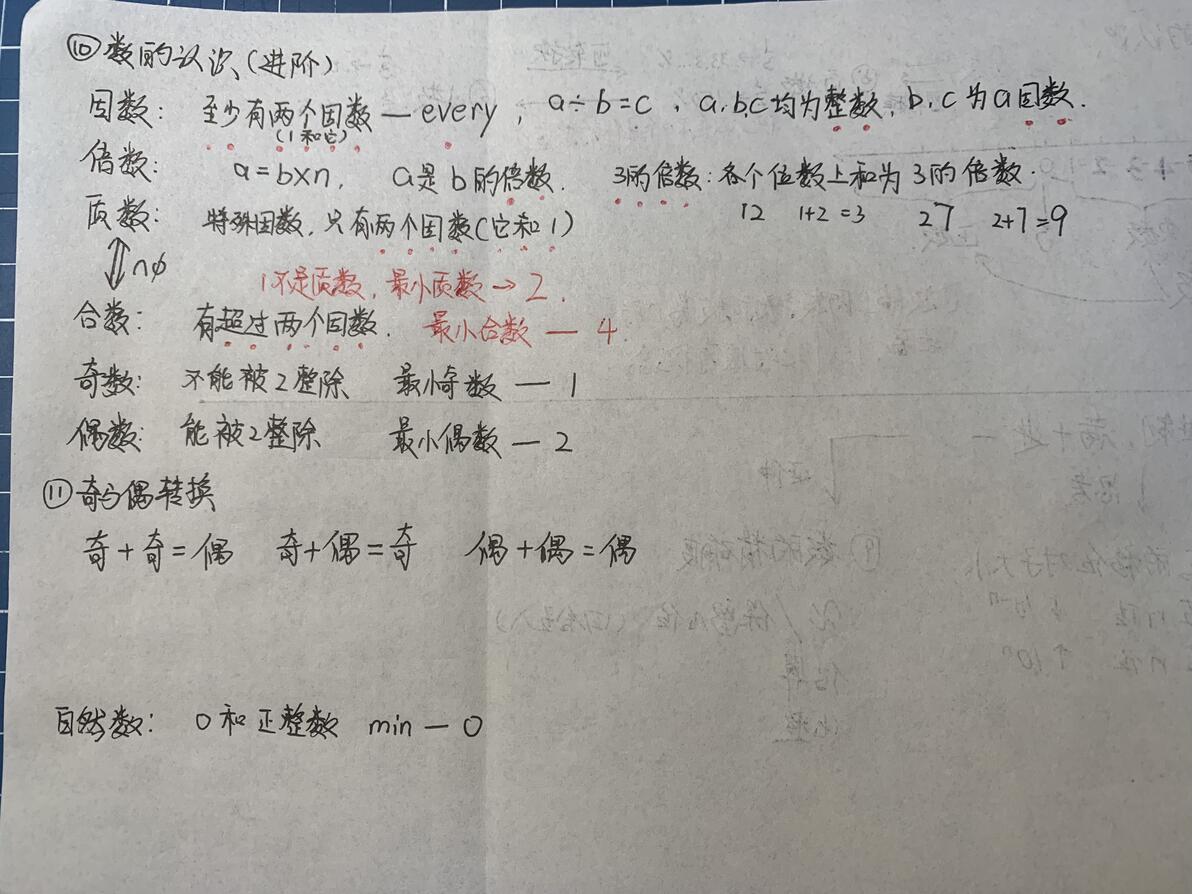 ⑩数的认识(进阶)
因数: 至少有两个因数 — every, a÷b=c, a,b,c均为整数, b,c为a因数.
(1和它)
倍数: a=b×n, a是b的倍数. 3的倍数:各个位数上和为3的倍数.
12 1+2=3 27 2+7=9
质数: 特殊因数,只有两个因数(它和1)
⇕ ∩φ
1不是质数,最小质数→2.
合数: 有超过两个因数. 最小合数 — 4.
奇数: 不能被2整除 最小奇数 — 1
偶数: 能被2整除 最小偶数 — 2
⑪奇与偶转换
奇+奇=偶 奇+偶=奇 偶+偶=偶
自然数: 0和正整数 min — 0